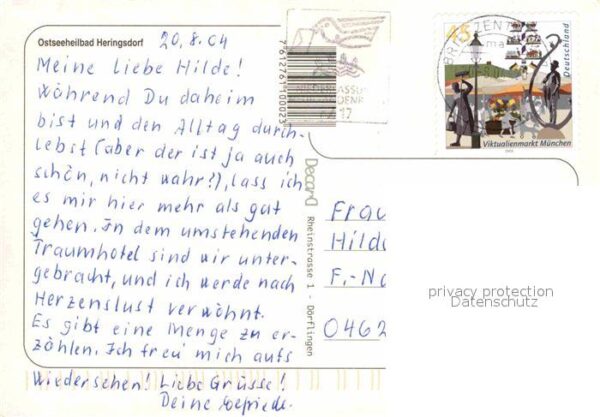 Ostseeheilbad Heringsdorf
20.8.04
Meine Liebe Hilde!
Während Du daheim
bist und den Alltag durch-
lebst (aber der ist ja auch
schön, nicht wahr?), lass ich
es mir hier mehr als gut
gehen. In dem umstehenden
Traumhotel sind wir unter-
gebracht, und ich werde nach
Herzenslust verwöhnt.
Es gibt eine Menge zu er-
zählen. Ich freu' mich aufs
Wiedersehen! Liebe Grüsse!
Deine
7612761100023
Decard
Rheinstrasse 1 - Dörflingen
BRIEFZENT
45
Deutschland
Viktualienmarkt München
Frau
Hild
F.-
0462
privacy protection
Datenschutz